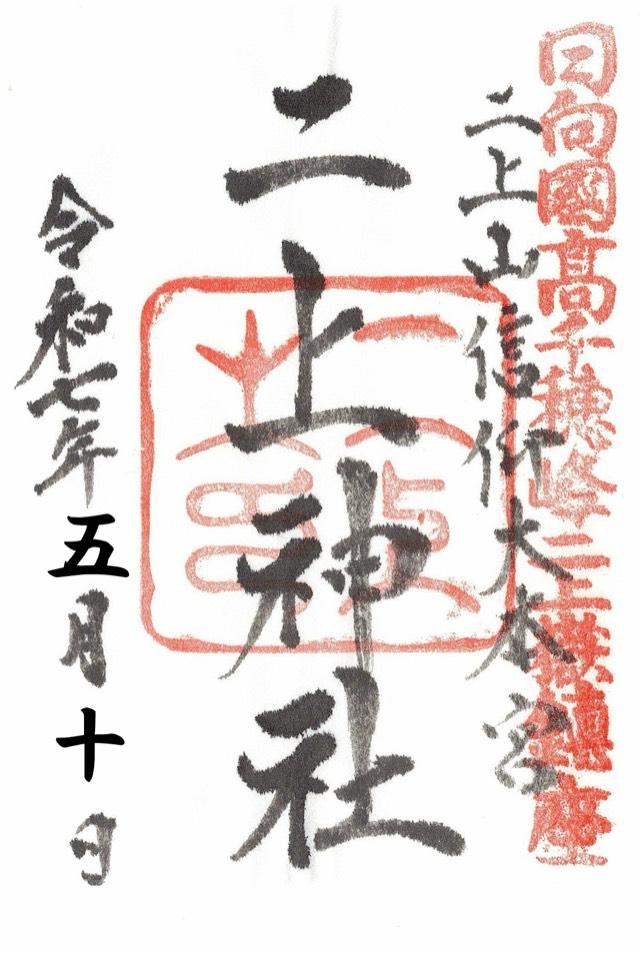 日向國高千穂峰二上嶽鎮座
二上山信仰大本宮
二上神社
令和七年五月十日